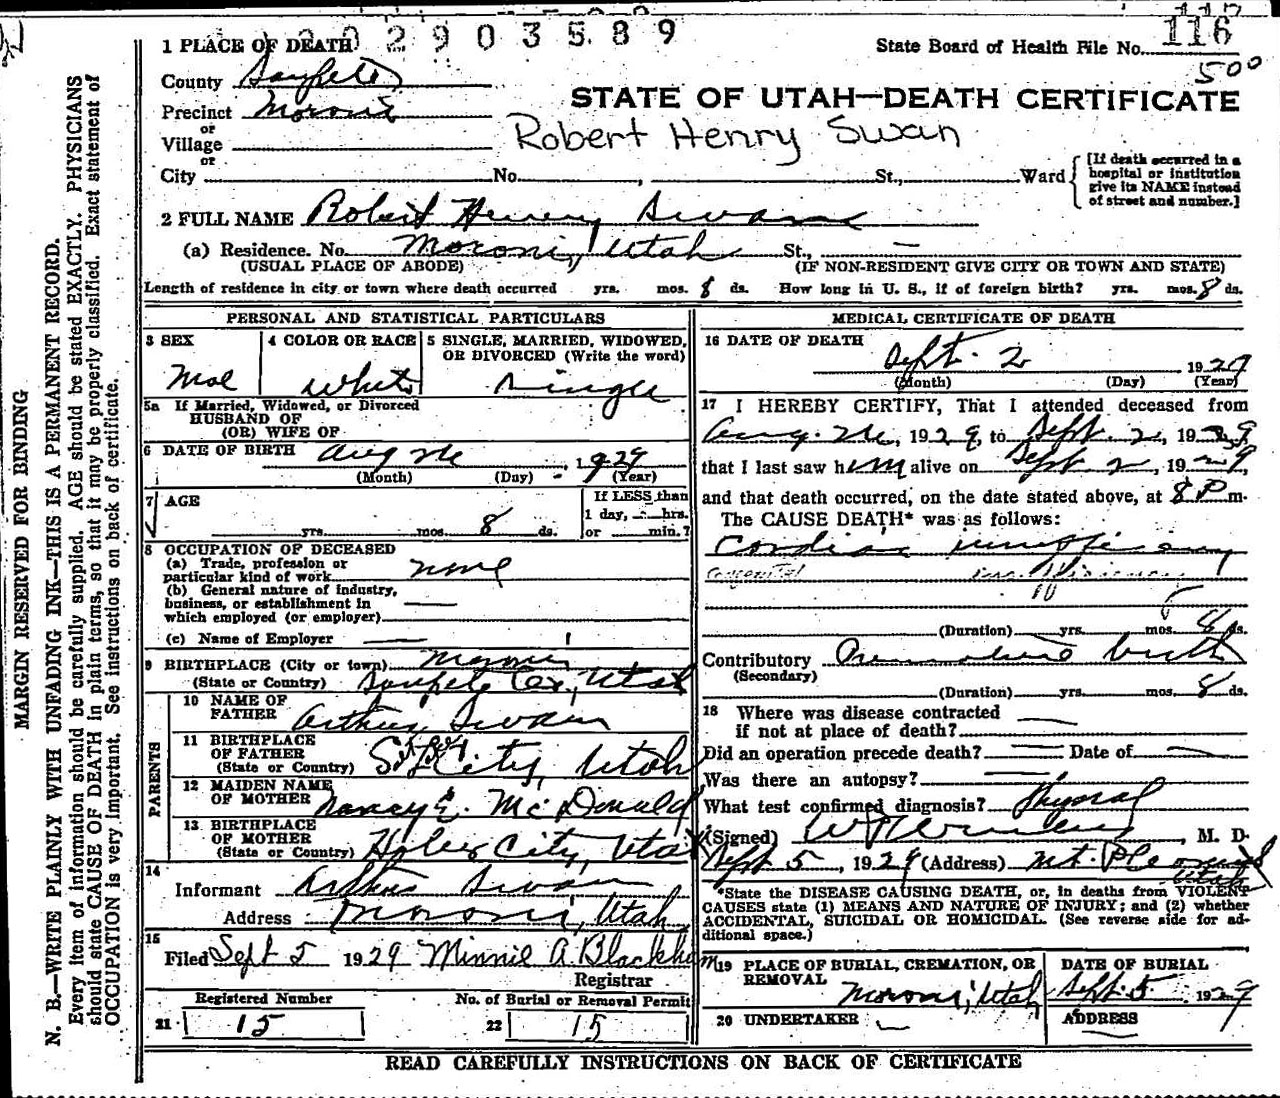 202903589
1 PLACE OF DEATH
State Board of Health File No. 116
500
County Sanpete
STATE OF UTAH—DEATH CERTIFICATE
Precinct Moroni
or
Village
Robert Henry Swan
or
City No. , St., Ward
[If death occurred in a
hospital or institution
give its NAME instead
of street and number.]
2 FULL NAME Robert Henry Swan
(a) Residence. No. Moroni, Utah St., —
(USUAL PLACE OF ABODE) (IF NON-RESIDENT GIVE CITY OR TOWN AND STATE)
Length of residence in city or town where death occurred yrs. mos. 8 ds. How long in U. S., if of foreign birth? yrs. mos. 8 ds.
PERSONAL AND STATISTICAL PARTICULARS
3 SEX
Male
4 COLOR OR RACE
White
5 SINGLE, MARRIED, WIDOWED,
OR DIVORCED (Write the word)
Single
5a If Married, Widowed, or Divorced
HUSBAND OF
(OR) WIFE OF
6 DATE OF BIRTH Aug , 1929
(Month) (Day) (Year)
7 AGE
yrs. mos. 8 ds.
If LESS than
1 day, hrs.
or min.?
8 OCCUPATION OF DECEASED
(a) Trade, profession or
particular kind of work none
(b) General nature of industry,
business, or establishment in
which employed (or employer)
(c) Name of Employer
9 BIRTHPLACE (City or town) Moroni
(State or Country) Sanpete Co., Utah
PARENTS
10 NAME OF
FATHER Arthur Swan
11 BIRTHPLACE
OF FATHER
(State or Country) City, Utah
12 MAIDEN NAME
OF MOTHER Nancy E. McDonald
13 BIRTHPLACE
OF MOTHER
(State or Country) Heber City, Utah
14
Informant Arthur Swan
Address Moroni, Utah
15
Filed Sept 5 1929 Minnie A. Blackham
Registrar
Registered Number
21 15
No. of Burial or Removal Permit
22 15
MEDICAL CERTIFICATE OF DEATH
16 DATE OF DEATH
Sept. 2 1929
(Month) (Day) (Year)
17 I HEREBY CERTIFY, That I attended deceased from
Aug. , 1929, to Sept. 2, 1929
that I last saw him alive on Sept 2, 1929
and that death occurred, on the date stated above, at 8 P m.
The CAUSE DEATH* was as follows:
Cardiac insufficiency
(Duration) yrs. mos. 8 ds.
Contributory Premature birth
(Secondary)
(Duration) yrs. mos. 8 ds.
18 Where was disease contracted
if not at place of death?
Did an operation precede death? Date of
Was there an autopsy?
What test confirmed diagnosis? Physical
(Signed) , M. D.
Sept 5, 1929 (Address) Mt. Pleasant
Utah
*State the DISEASE CAUSING DEATH, or, in deaths from VIOLENT
CAUSES state (1) MEANS AND NATURE OF INJURY; and (2) whether
ACCIDENTAL, SUICIDAL OR HOMICIDAL. (See reverse side for ad-
ditional space.)
19 PLACE OF BURIAL, CREMATION, OR
REMOVAL
Moroni, Utah
DATE OF BURIAL
Sept. 5 1929
20 UNDERTAKER
ADDRESS
READ CAREFULLY INSTRUCTIONS ON BACK OF CERTIFICATE
MARGIN RESERVED FOR BINDING
N. B.—WRITE PLAINLY WITH UNFADING INK—THIS IS A PERMANENT RECORD.
Every item of information should be carefully supplied. AGE should be stated EXACTLY. PHYSICIANS
should state CAUSE OF DEATH in plain terms, so that it may be properly classified. Exact statement of
OCCUPATION is very important. See instructions on back of certificate.